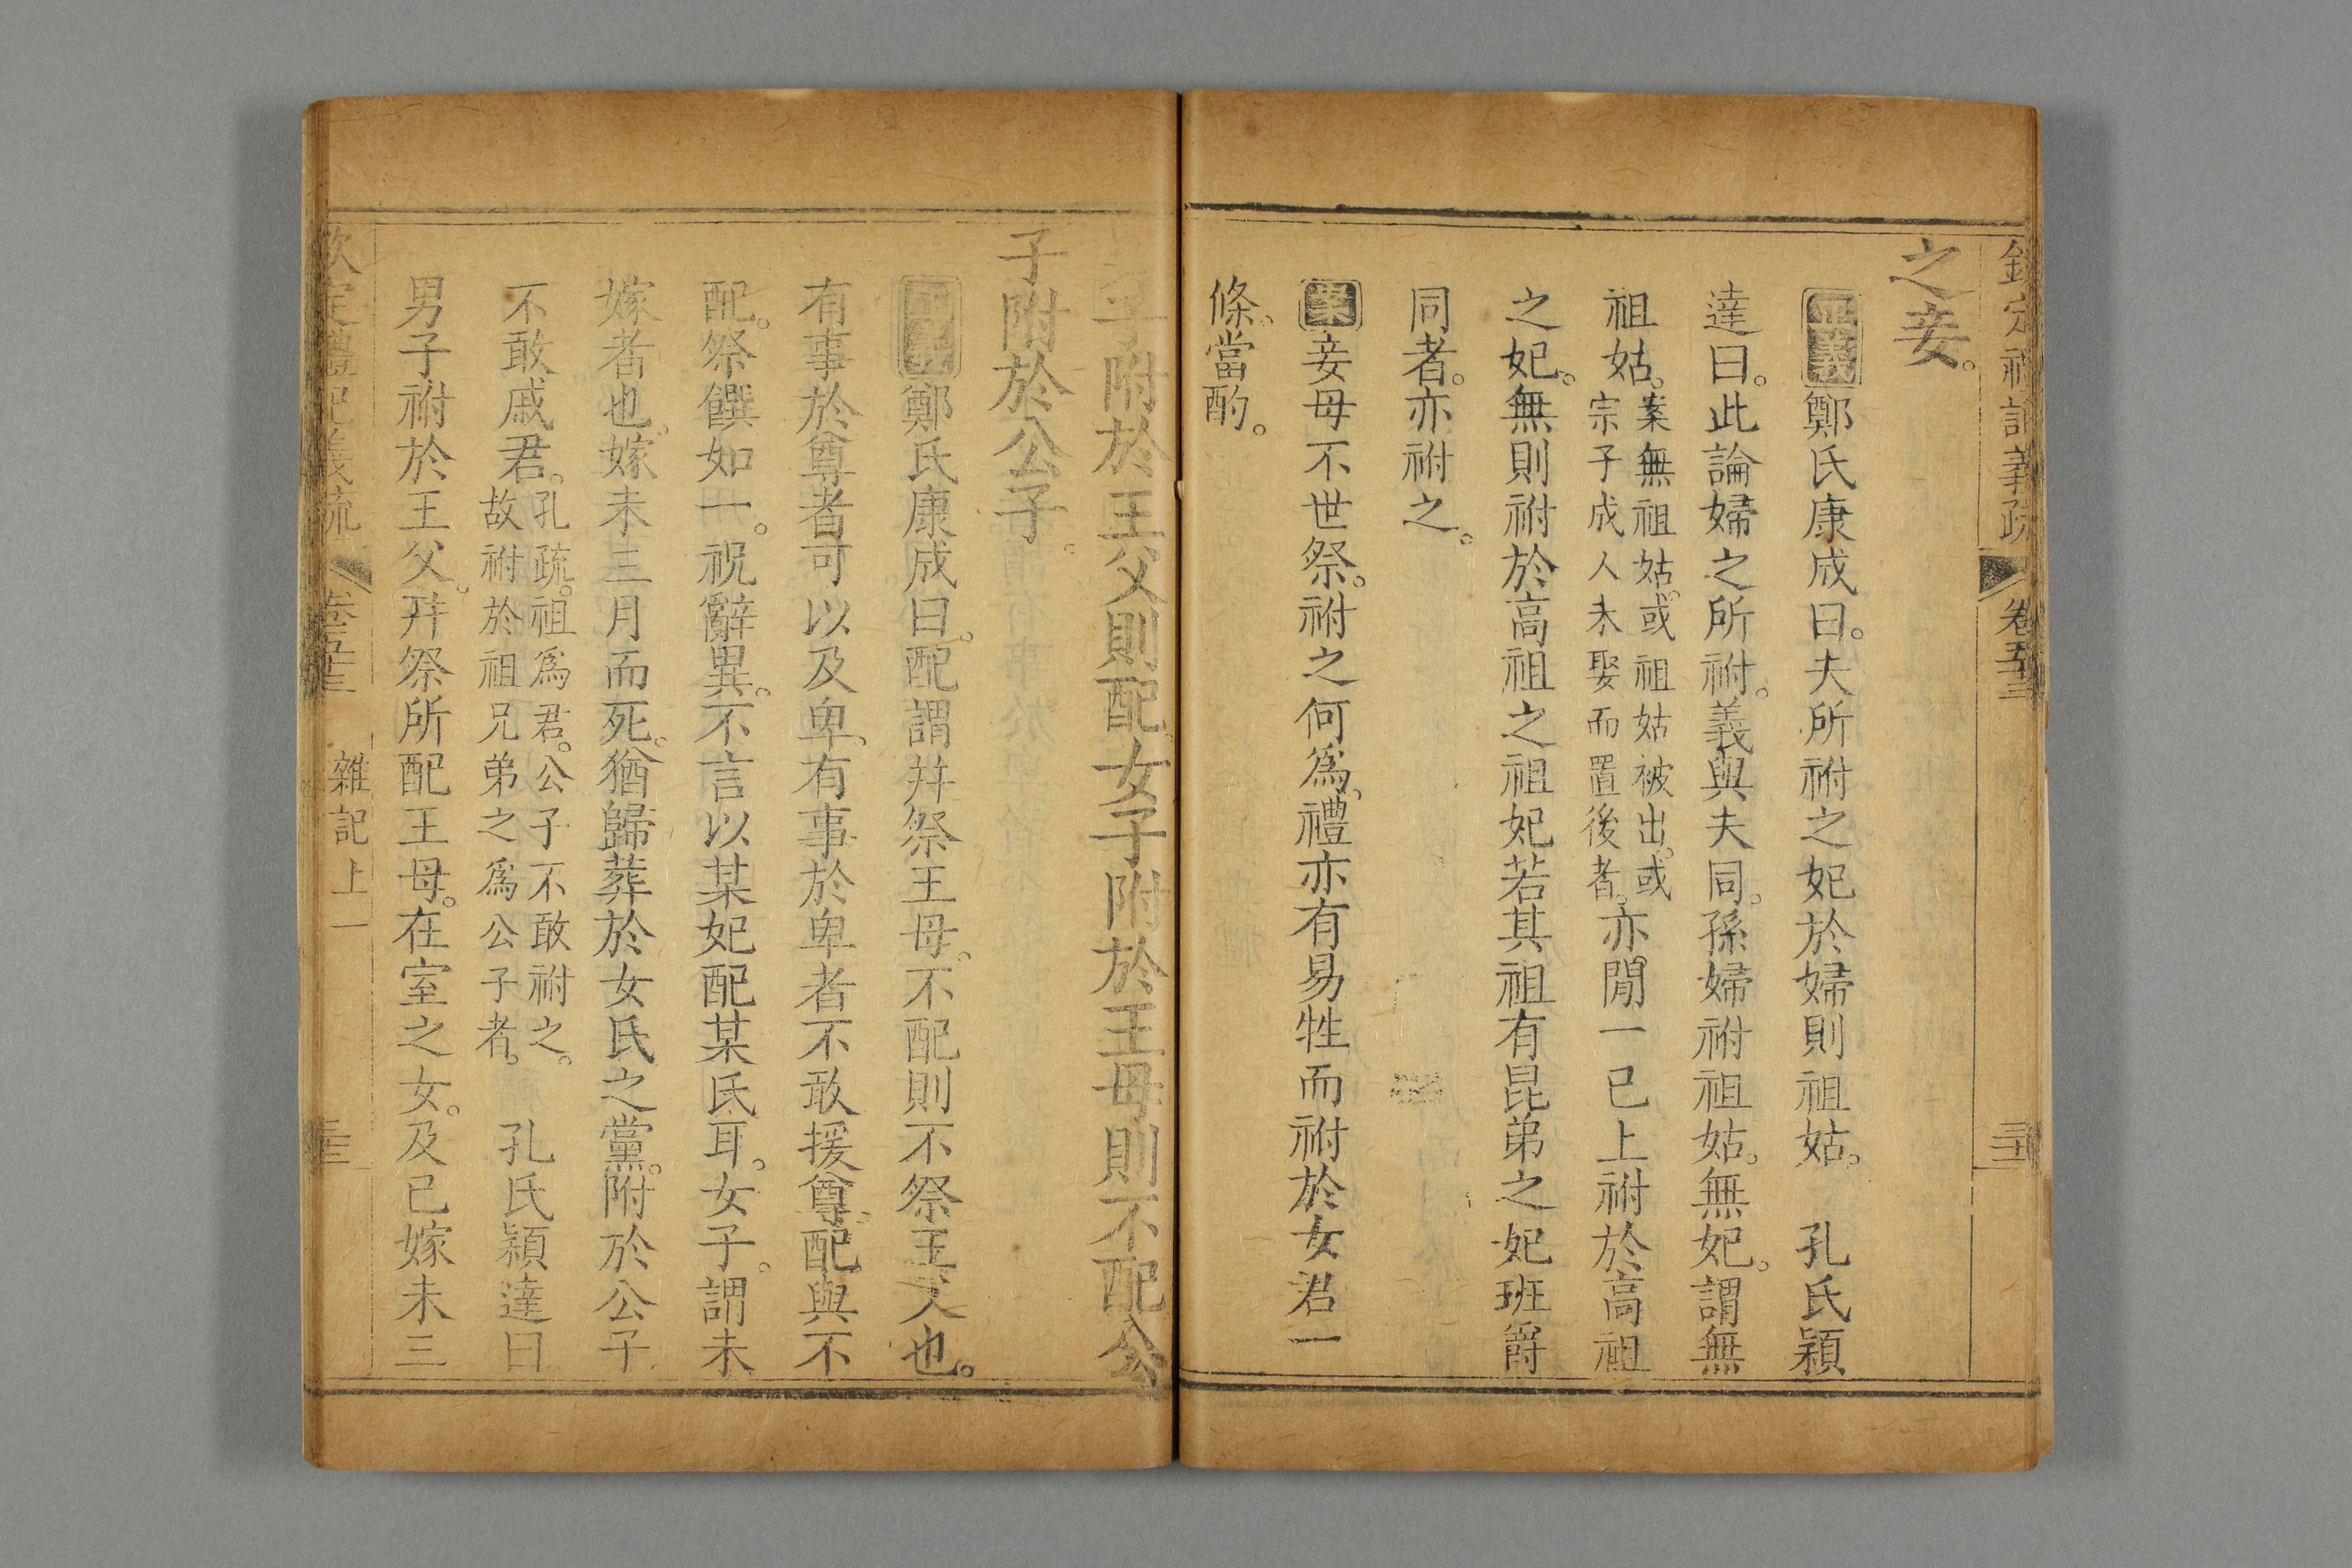 欽定禮記義疏 卷五十三
之妾。
正義鄭氏康成曰。夫所祔之妃於婦則祖姑。 孔氏穎
達曰。此論婦之所祔。義與夫同。孫婦祔祖姑。無妃。謂無
祖姑。案無祖姑。或祖姑被出。或
宗子成人未娶而置後者。亦閒一已上祔於高祖
之妃。無則祔於高祖之祖妃若其祖有昆弟之妃班爵
同者。亦祔之。
案妾母不世祭。祔之何爲。禮亦有易牲而祔於女君一
條。當酌。
子附於王父則配女子附於王母則不配公
子附於公子。
正義鄭氏康成曰。配謂并祭王母。不配則不祭王父也。
有事於尊者可以及卑。有事於卑者不敢援尊。配與不
配。祭饌如一。祝辭異。不言以某妃配某氏耳。女子。謂未
嫁者也。嫁未三月而死。猶歸葬於女氏之黨。附於公子
不敢戚君。孔疏。祖爲君。公子不敢祔之。
故祔於祖兄弟之爲公子者。 孔氏穎達曰
男子祔於王父。并祭所配王母。在室之女。及已嫁未三
欽定禮記義疏 卷五十三 雜記上一